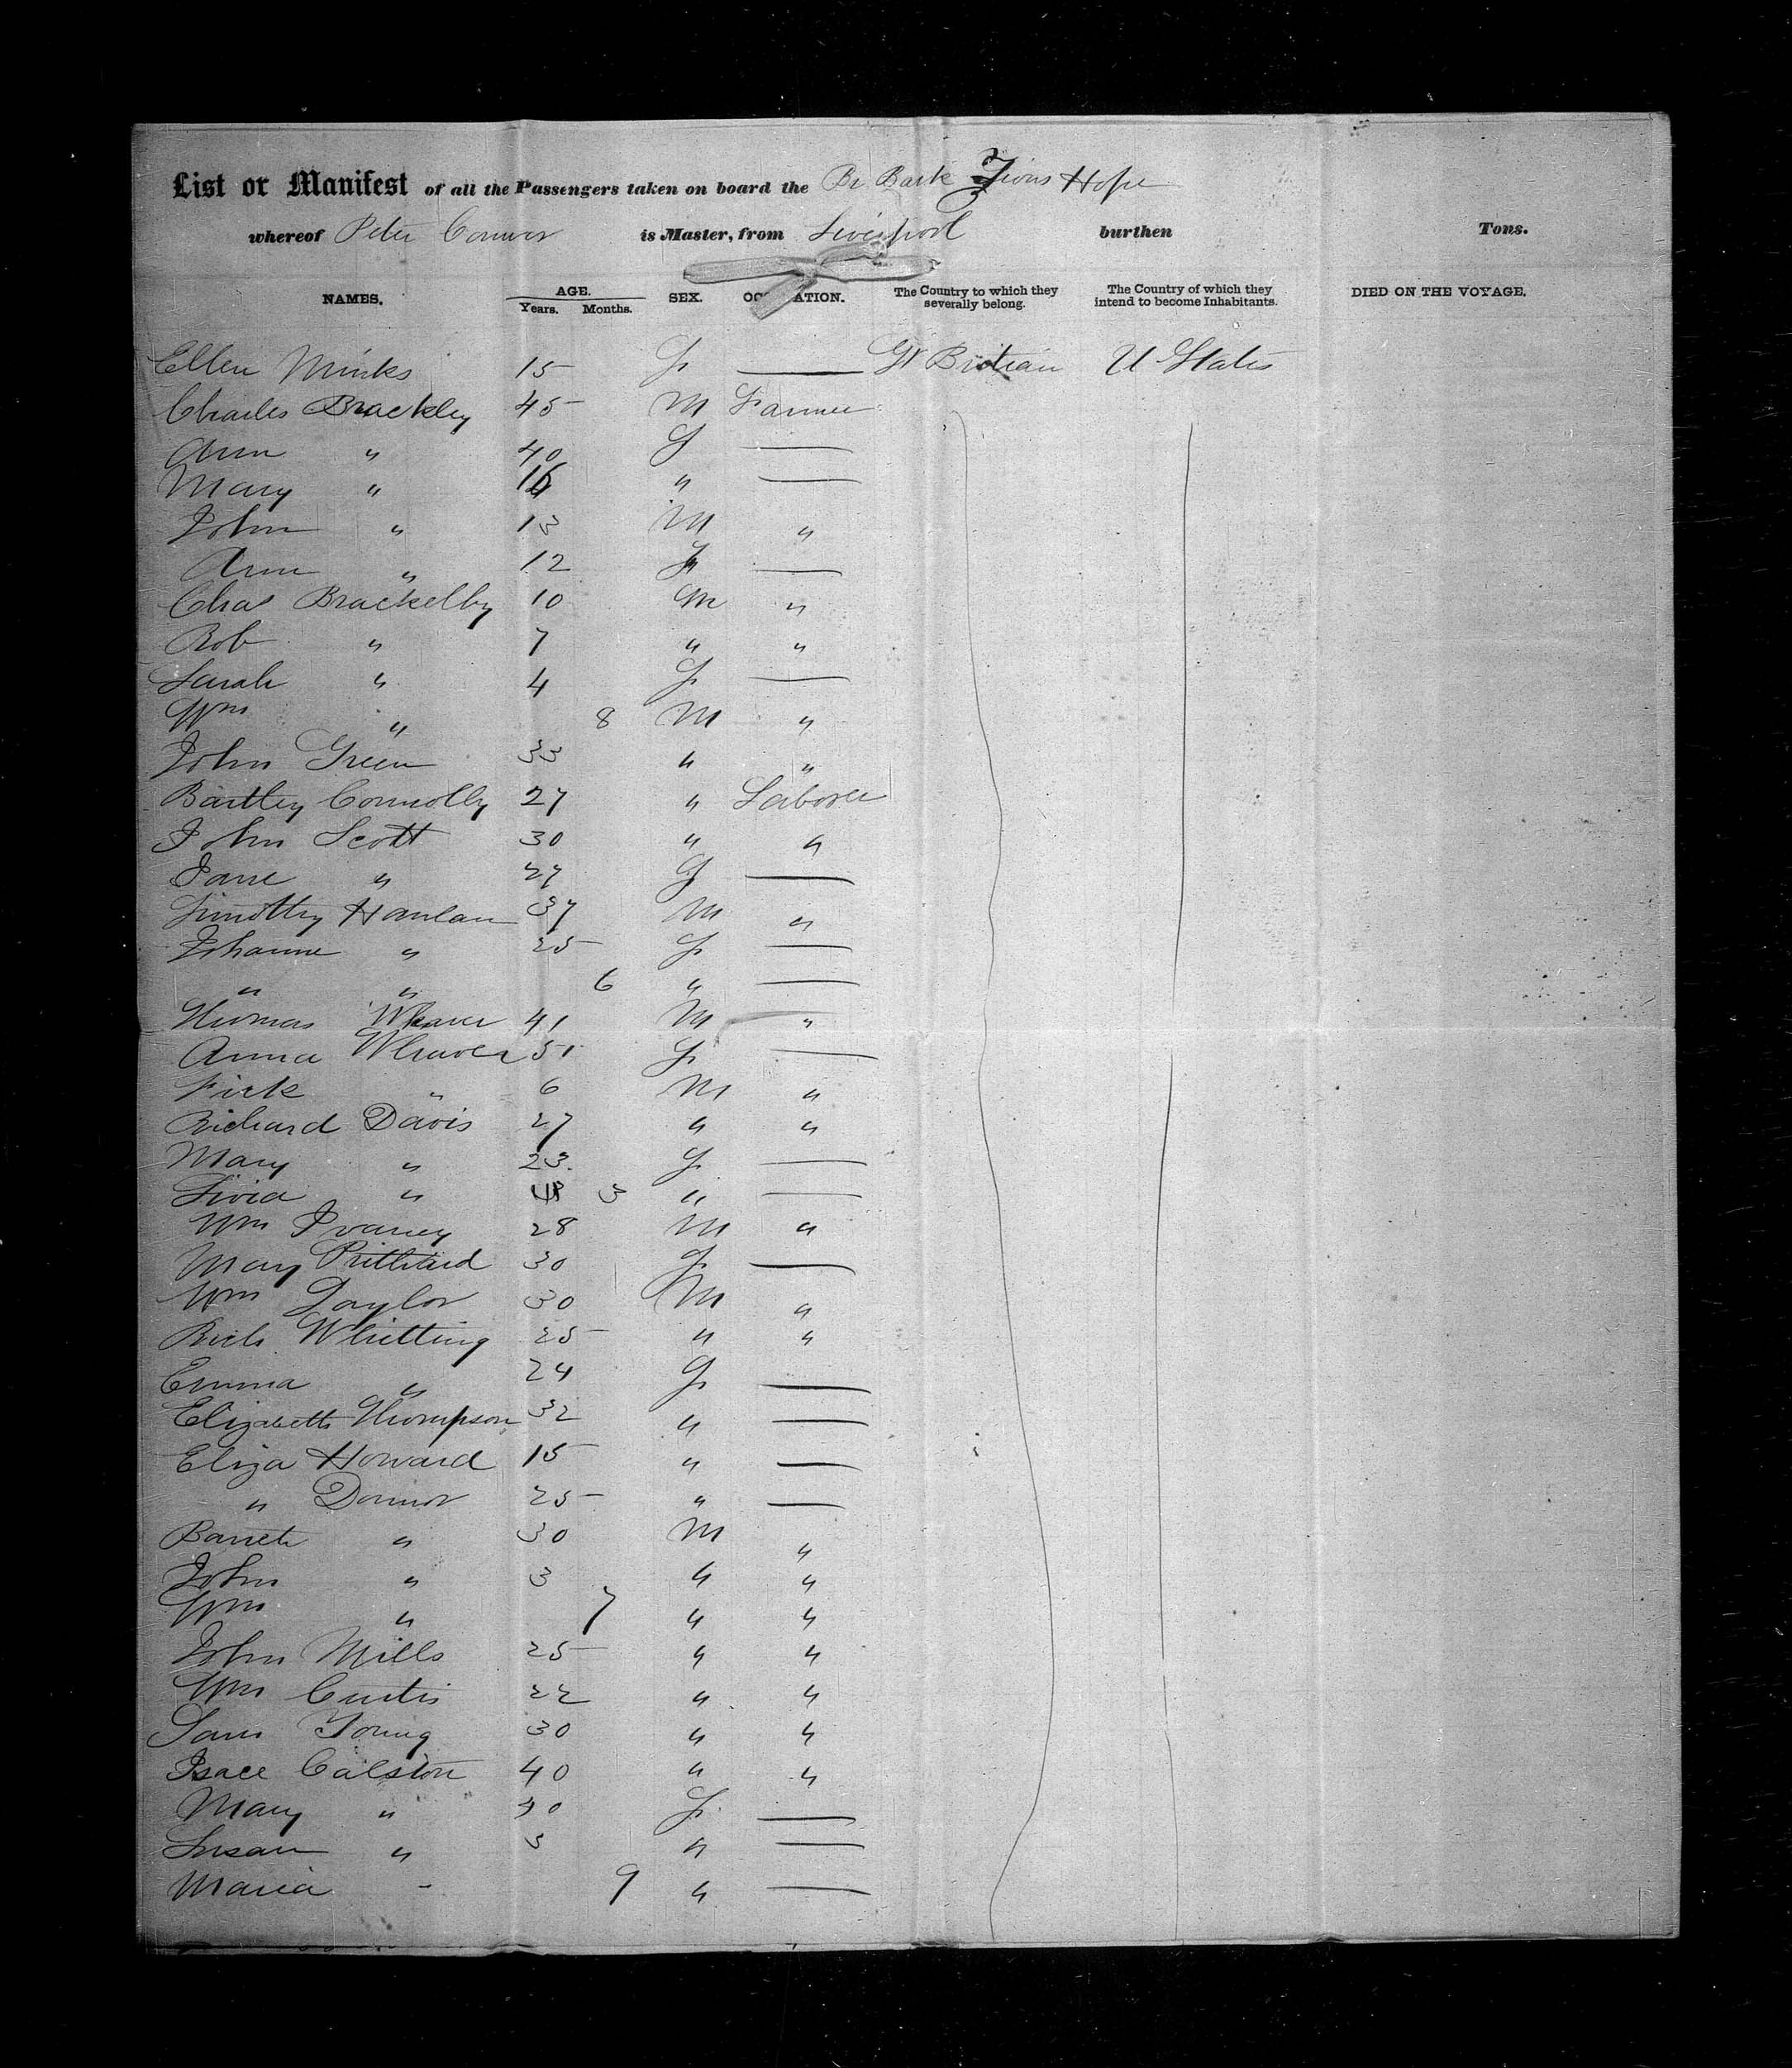 List or Manifest of all the Passengers taken on board the Br Bark Zions Hope
whereof Peter Connor is Master, from Liverpool burthen Tons.
NAMES. AGE. Years. Months. SEX. OCCUPATION. The Country to which they severally belong. The Country of which they intend to become Inhabitants. DIED ON THE VOYAGE.
Ellen Minks 15 F — Gt Britian U States
Charles Brackley 45 M Farmer
Ann " 40 F —
Mary " 16 " —
John " 13 M "
Ann " 12 F —
Chas Brackelby 10 M "
Rob " 7 " "
Sarah " 4 F —
Wm " 8 M "
John Green 33 " "
Bartley Connolly 27 " Laborer
John Scott 30 " "
Jane " 27 F —
Timothy Hanlan 37 M "
Johanne " 25 F —
" " 6 " —
Thomas Weaver 41 M "
Anna Weaver 51 F —
" 6 M "
Richard Davis 27 " "
Mary " 23 F —
" 3 " —
Wm 28 M "
Mary Prithard 30 F —
Wm Taylor 30 M "
Rich Whitting 25 " "
Emma " 24 F —
Elizabeth Thompson 32 " —
Eliza Howard 15 " —
" 25 " —
" 30 M "
John " 3 " "
Wm " 7 " "
John Mills 25 " "
Wm Curtis 22 " "
Sam Young 30 " "
Isace Calston 40 " "
Mary " 40 F —
Susan " 3 " —
Maria " 9 " —